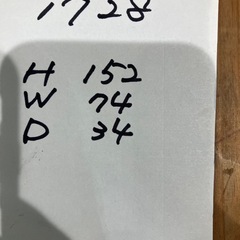 1728
H 152
W 74
D 34